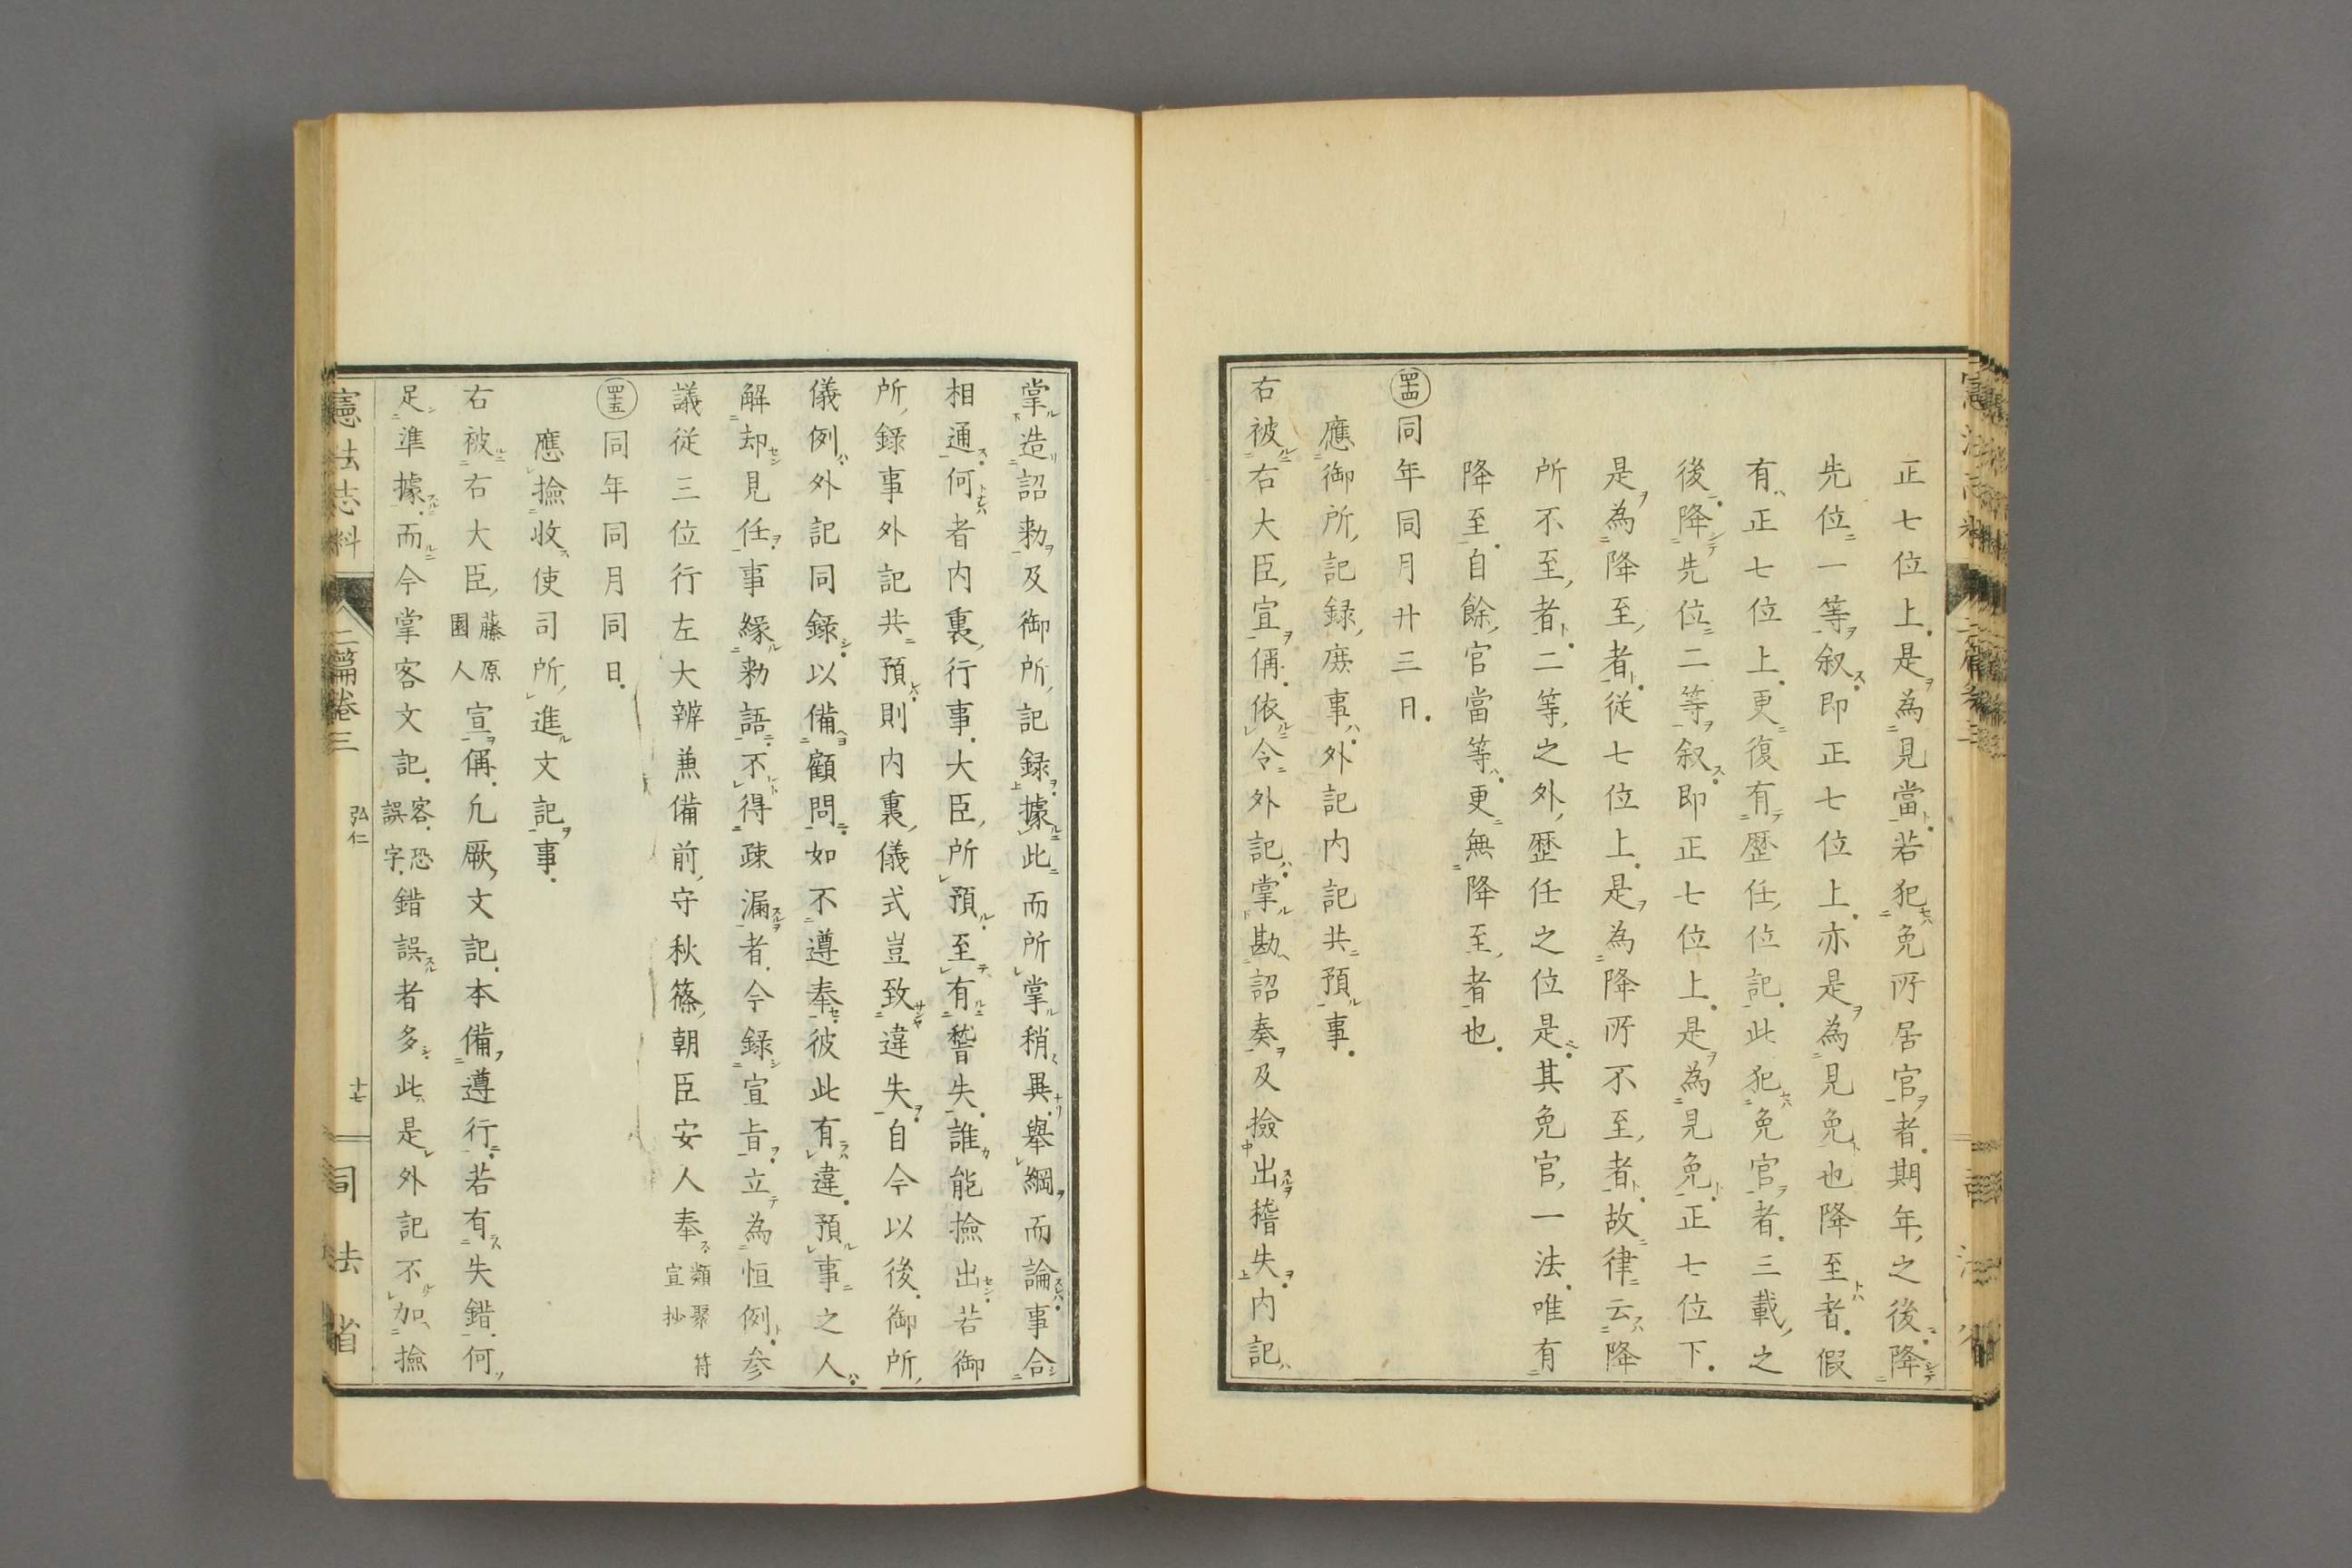 正七位上是為見當若犯免所居官者期年之後降
先位一等叙即正七位上亦是為見免也降至者假
有正七位上更復有歷任位記此犯免官者三載之
後降先位二等叙即正七位上是為見免正七位下
是為降至者從七位上是為降所不至者故律云降
所不至者二等之外歷任之位是其免官一法唯有
降至自餘官當等更無降至者也
四十四同年同月廿三日
應御所記録庶事外記内記共預事
右被右大臣宣偁依令外記掌勘詔奏及撿出稽失内記
掌造詔勅及御所記録據此而所掌稍異舉綱而論事合
相通何者内裏行事大臣所預至有稽失誰能撿出若御
所録事外記共預則内裏儀式豈致違失自今以後御所
儀例外記同録以備顧問如不遵奉彼此有違預事之人
解却見任事緣勅語不得疎漏者今録宣旨立為恒例参
議從三位行左大辨兼備前守秋篠朝臣安人奉類聚符宣抄
四十五同年同月同日
應撿收使司所進文記事
右被右大臣藤原園人宣偁凡厥文記本備遵行若有失錯何
足準據而今掌客文記客恐誤字錯誤者多此是外記不加撿
憲法志料 二篇卷三 弘仁 十七 司法省